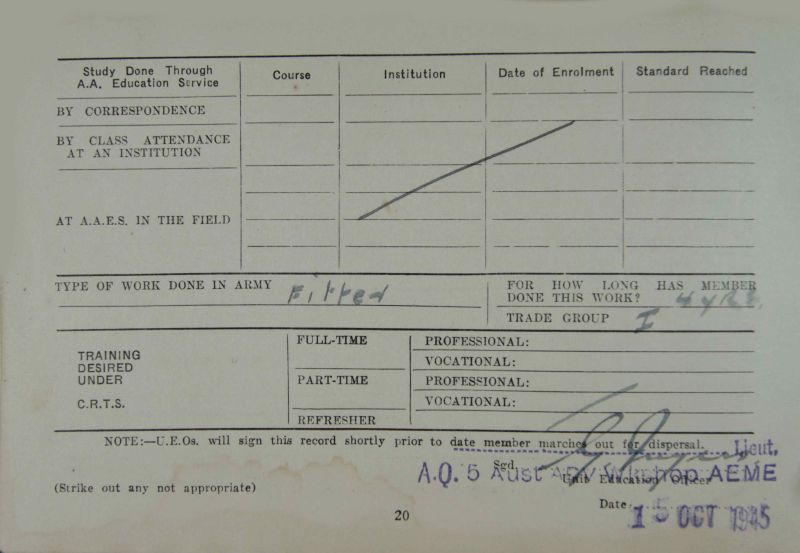 Study Done Through
A.A. Education Service
Course
Institution
Date of Enrolment
Standard Reached
BY CORRESPONDENCE
BY CLASS ATTENDANCE
AT AN INSTITUTION
AT A.A.E.S. IN THE FIELD
TYPE OF WORK DONE IN ARMY
Fitter
FOR HOW LONG HAS MEMBER
DONE THIS WORK? 4 YRS.
TRADE GROUP I
TRAINING
DESIRED
UNDER
C.R.T.S.
FULL-TIME
PROFESSIONAL:
VOCATIONAL:
PART-TIME
PROFESSIONAL:
VOCATIONAL:
REFRESHER
NOTE:—U.E.Os. will sign this record shortly prior to date member marches out for dispersal.
Lieut.
Sgd.
A.Q. 5 Aust Adv Wkshop AEME
Unit Education Officer
(Strike out any not appropriate)
Date: 15 OCT 1945
20